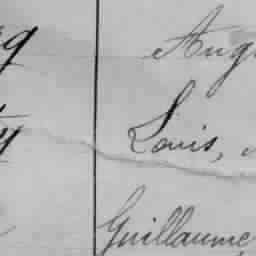 Aug
Louis,
Guillaume,